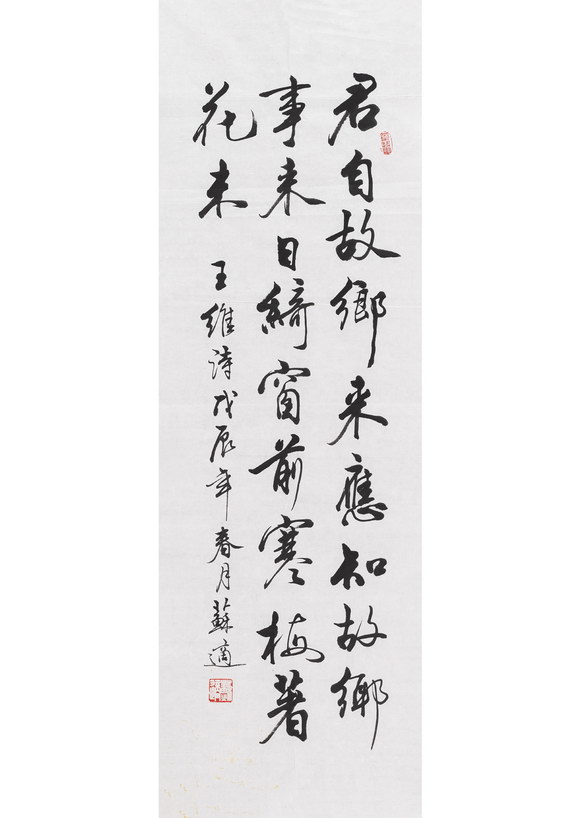 君自故鄉来應知故鄉
事来日綺窗前寒梅著
花未 王維詩戊辰年春月蘇適